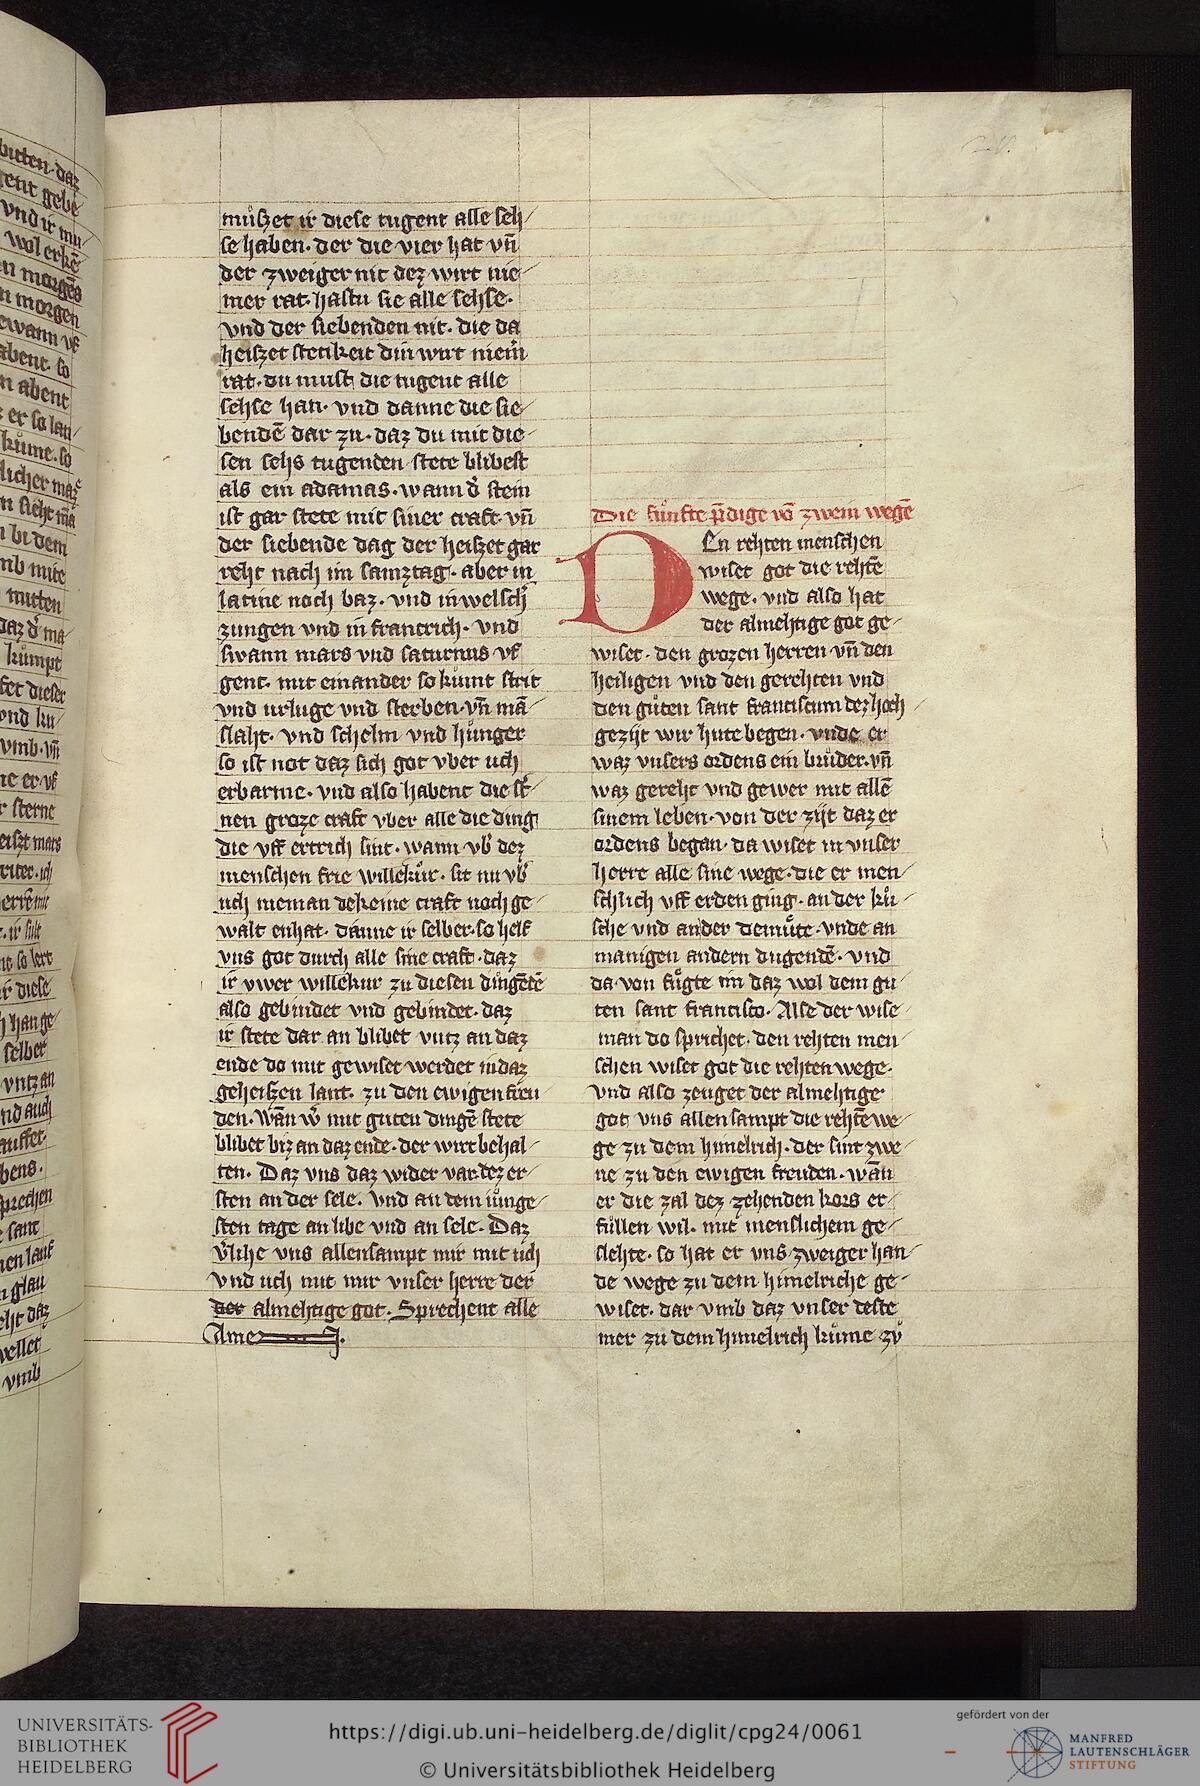 muͦszet ir diese tugent alle seh/
se haben· der die vier hat vn̄
der zweiger nit dez wirt nie/
mer rat· hastu sie alle sehse·
vnd der siebenden nit· die da
heiszet stetikeit din wirt niem̉
rat· du must die tugent alle
sehse han· vnd danne die sie/
bendē dar zu· daz du mit die/
sen sehs tugenden stete blibest
als ein adamas· wann d̉ stein
ist gar stete mit siner craft· vn̄
der siebende dag der heiszet gar
reht nach im samztag· aber in
latine noch baz· vnd in welsch̉
zungen vnd in francrich· vnd
swann mars vnd saturnus vf
gent· mit einander so kuͦmt strit
vnd urluge vnd sterben· vn̄ mā/
slaht· vnd schelm vnd huͦnger
so ist not daz sich got vber uch
erbarme· vnd also habent die st̉/
nen groze craft vber alle die ding
die vff ertrich sint· wann vb̉ dez
menschen frie willekuͦr· sit nu vb̉
uch nieman dekeine craft noch ge/
walt enhat· danne ir selber· so helf
vns got durch alle sine craft· daz
ir vwer willekur zu diesen duͦgētē
also gebindet vnd gebindet· daz
ir stete dar an blibet vntz an daz
ende do mit gewiset werdet in daz
geheiszen lant· zu den ewigen freu/
den· Wān w̉ mit guten dingē stete
blibet biz an daz ende· der wirt behal/
ten· Daz vns daz wider var· dez er/
sten an der sele· vnd an dem iuͦnge/
sten tage an libe vnd an sele· Daz
v̉lihe vns allensampt mir mit uch
vnd uch mit mir vnser herre der
der almehtige got· Sprechent alle
Amen.
Die fuͦnfte p̄dige vō zwein wegē
DEn rehten menschen
wiset got die rehtē
wege· vnd also hat
der almehtige got ge/
wiset· den grozen herren vn̄ den
heiligen vnd den gerehten vnd
den guͦten sant franciscum dez hoch/
gezijt wir hute begen· vnde er
waz vnsers ordens ein bruͦder· vn̄
waz gereht vnd gewer mit allē
sinem leben· von der zijt daz er
ordens began· da wiset in vnser
herre alle sine wege· die er men/
schlich vff erden ging· an der kuͦ/
sche vnd an der demuͦte· vnde an
manigen andern dugendē· vnd
da von fuͦgte im daz wol dem gu/
ten sant francisco· Alse der wise/
man do sprichet· den rehten men/
schen wiset got die rehten wege·
vnd also zeuget der almehtige
got vns allensampt die rehtē we/
ge zu dem himelrich· der sint zwe/
ne zu den ewigen freuden· wān
er die zal dez zehenden kors er/
fuͦllen wil· mit menslichem ge/
slehte· so hat er vns zweiger han/
de wege zu dem himelriche ge/
wiset· dar vmb daz vnser deste
mer zu dem himelrich kuͦme· zuͦ
UNIVERSITÄTS-
BIBLIOTHEK
HEIDELBERG
https://digi.ub.uni-heidelberg.de/diglit/cpg24/0061
© Universitätsbibliothek Heidelberg
gefördert von der
MANFRED
LAUTENSCHLÄGER
STIFTUNG